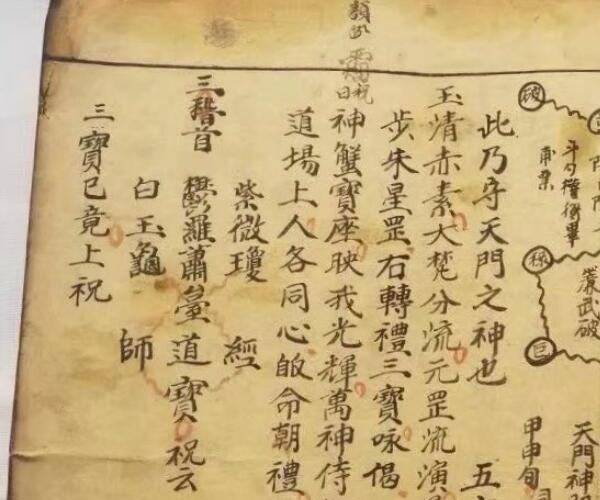 天門神
破
祿
巨
甲申旬
此乃守天門之神也 五
玉清赤素大梵分流元罡流演
步朱星罡右轉禮三寶咏偈
祝曰
神蟹寶座映我光輝萬神侍
道場上人各同心皈命朝禮
紫微瓊 經
三稽首 鬱羅蕭臺道寶祝云
白玉龜 師
三寶已竟上祝